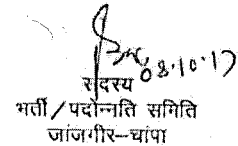 08.10.17
सदस्य
भर्ती/पदोन्नति समिति
जांजगीर-चांपा